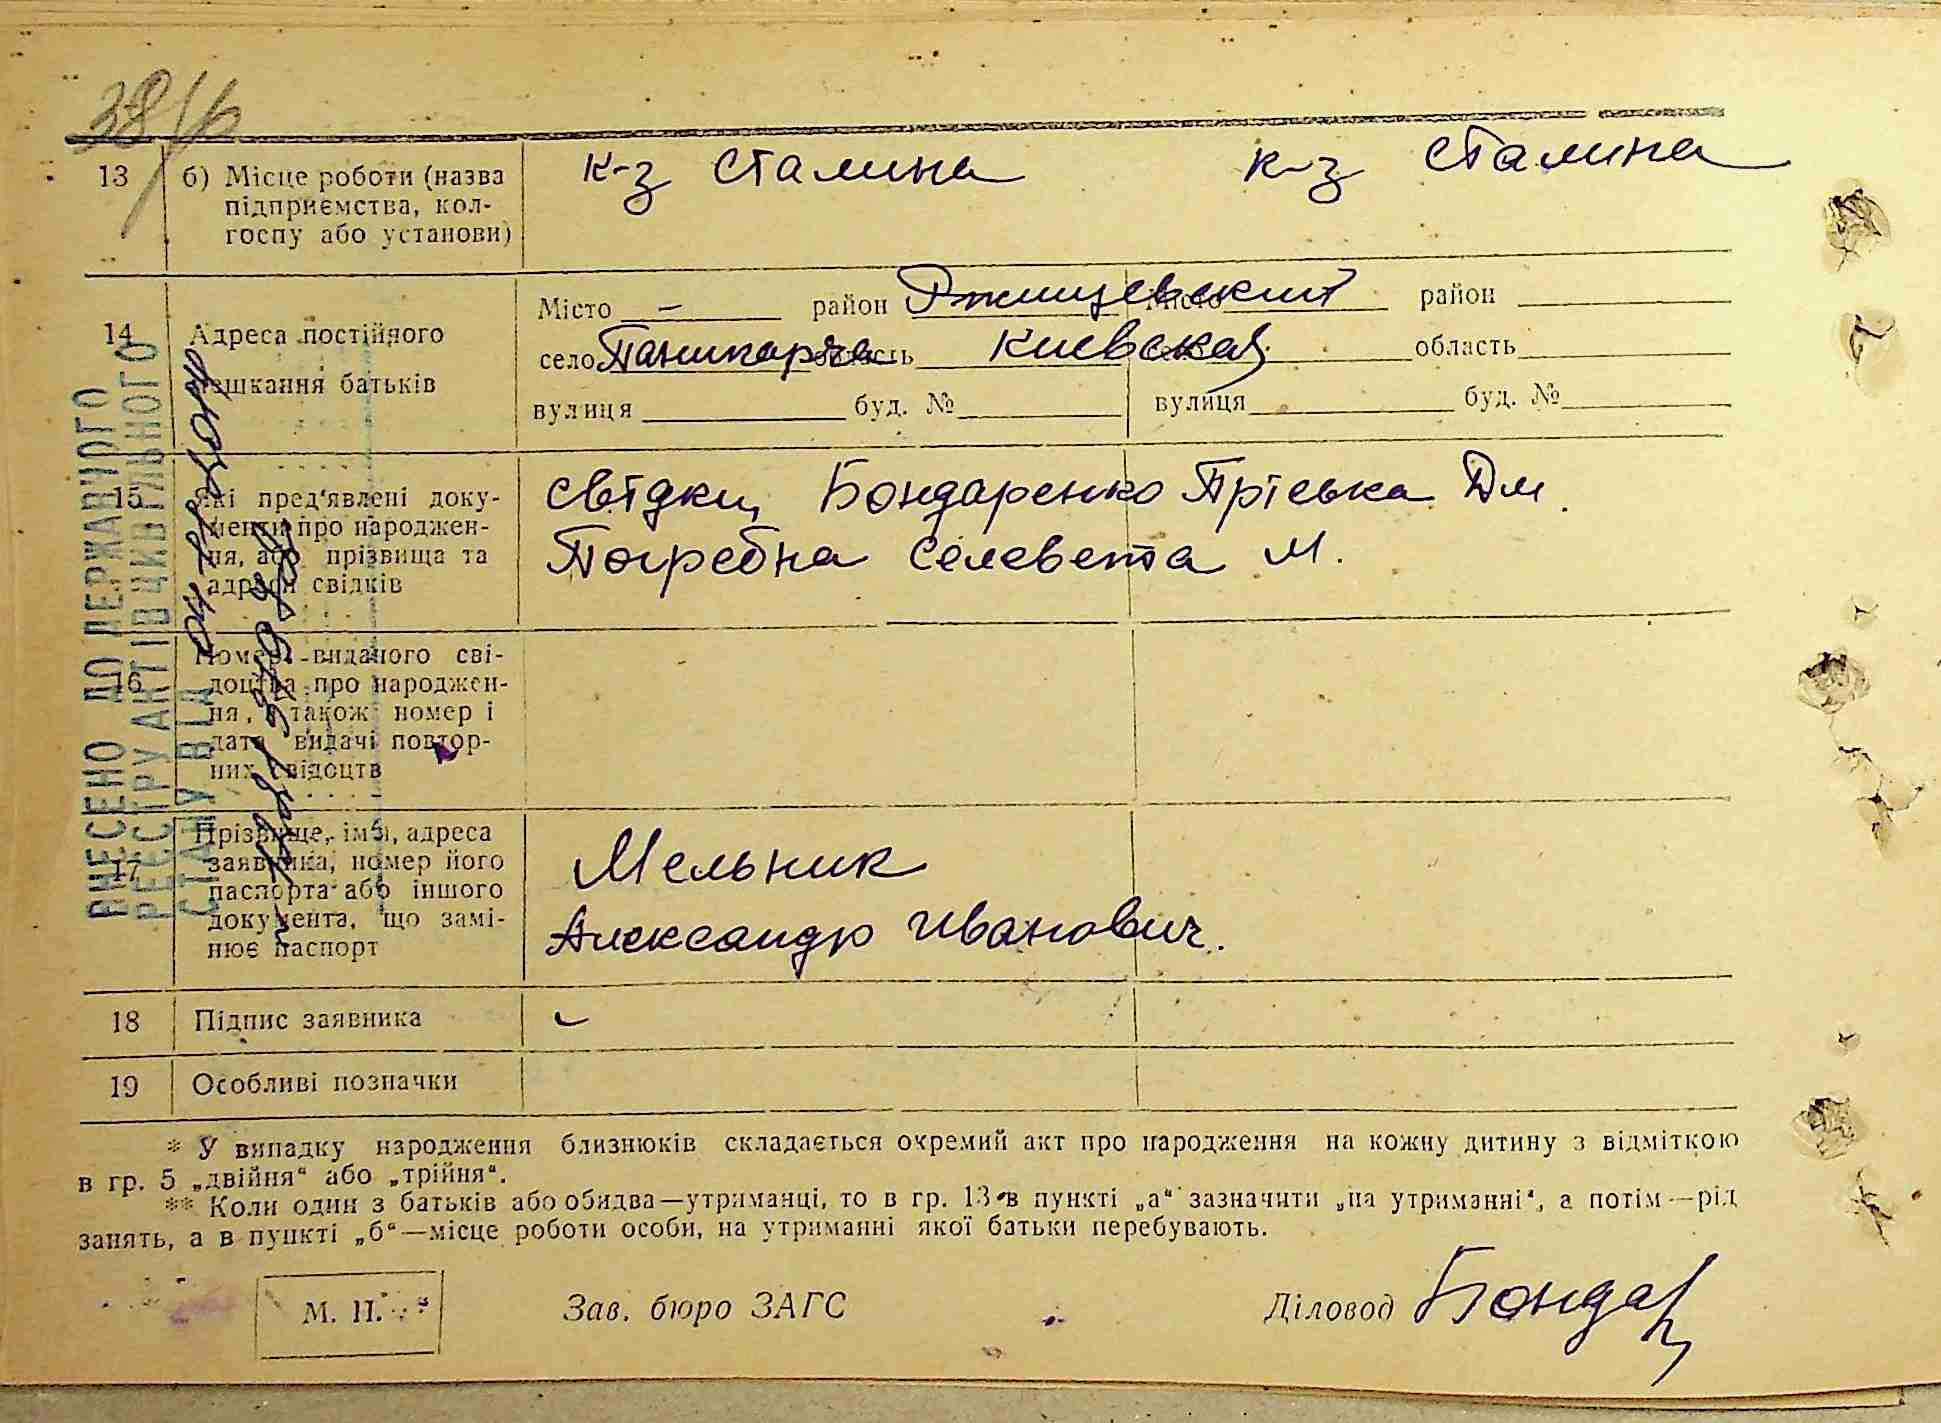 38/16
13 б) Місце роботи (назва підприємства, колгоспу або установи) к-з Сталина к-з Сталина
Місто – район Ржищевский Місто район
14 Адреса постійного мешкання батьків
село Паникарча область Киевская область
вулиця буд. № вулиця буд. №
15 Які пред'явлені доку-
менти про народжен-
ня, або прізвища та
адреси свідків
Свідки, Бондаренко Пріська Дм.
Погребна Селевета М.
16 Номер виданого сві-
доцтва про народжен-
ня, а також номер і
дата видачі повтор-
них свідоцтв
17 Прізвище, імя, адреса
заявника, номер його
паспорта або іншого
документа, що замі-
нює паспорт
Мельник
Александр Иванович.
18 Підпис заявника –
19 Особливі позначки
ВНЕСЕНО ДО ДЕРЖАВНОГО
РЕЄСТРУ АКТІВ ЦИВІЛЬНОГО
СТАНУ ВІД
* У випадку народження близнюків складається окремий акт про народження на кожну дитину з відміткою
в гр. 5 „двійня“ або „трійня“.
** Коли один з батьків або обидва—утриманці, то в гр. 13 в пункті „а“ зазначити „на утриманні“, а потім—рід
занять, а в пункті „б“—місце роботи особи, на утриманні якої батьки перебувають.
М. П. Зав. бюро ЗАГС Діловод Бондар